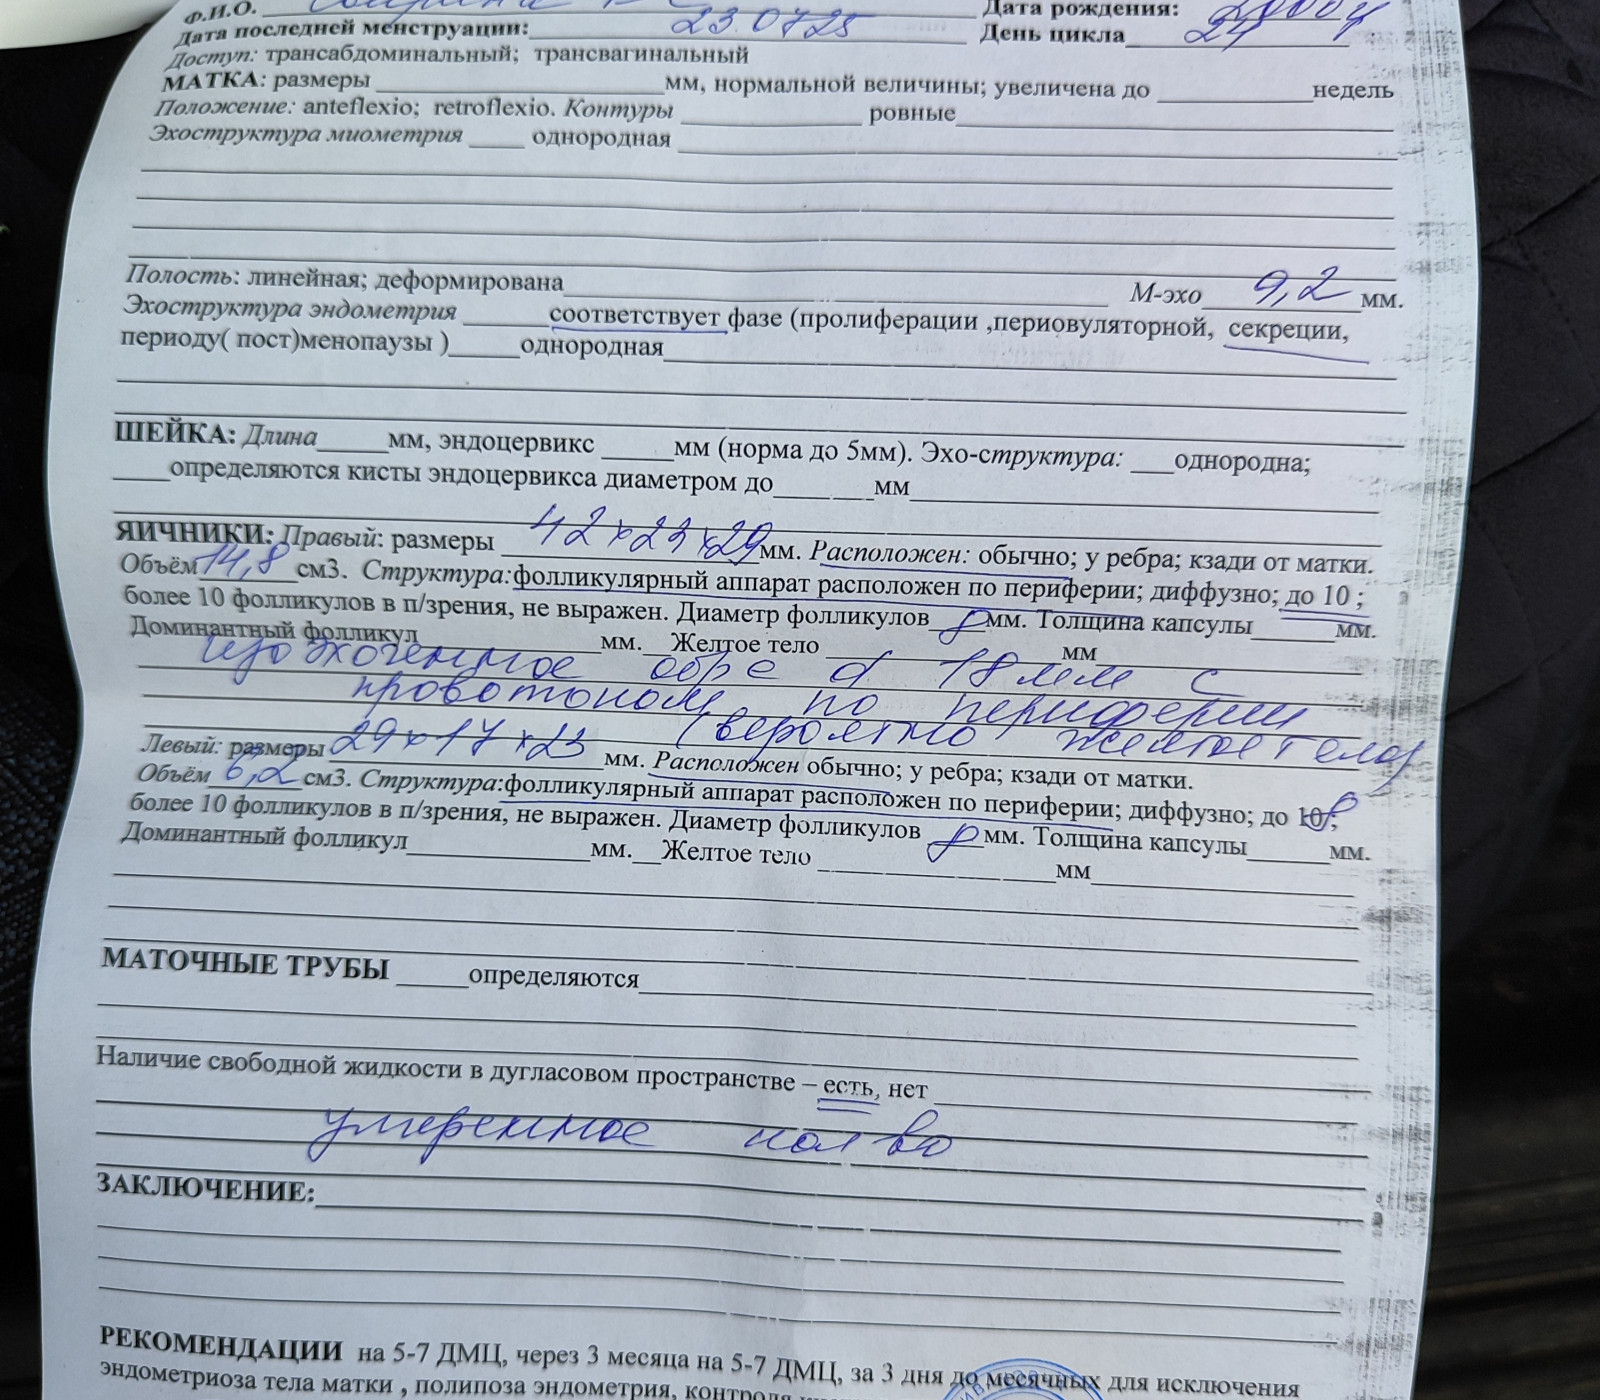 Ф.И.О. Дата рождения:
Дата последней менструации: 23.07.25 День цикла 24
Доступ: трансабдоминальный; трансвагинальный
МАТКА: размеры мм, нормальной величины; увеличена до недель
Положение: anteflexio; retroflexio. Контуры ровные
Эхоструктура миометрия однородная
Полость: линейная; деформирована М-эхо 9,2 мм.
Эхоструктура эндометрия соответствует фазе (пролиферации ,периовуляторной, секреции,
периоду( пост)менопаузы ) однородная
ШЕЙКА: Длина мм, эндоцервикс мм (норма до 5мм). Эхо-структура: однородна;
определяются кисты эндоцервикса диаметром до мм
ЯИЧНИКИ: Правый: размеры 42х23х29 мм. Расположен: обычно; у ребра; кзади от матки.
Объём 14,8 см3. Структура:фолликулярный аппарат расположен по периферии; диффузно; до 10 ;
более 10 фолликулов в п/зрения, не выражен. Диаметр фолликулов 8 мм. Толщина капсулы мм.
Доминантный фолликул мм. Желтое тело мм
изоэхогенное обр е d 18 мм с
кровотоком по периферии
(вероятно желтое тело)
Левый: размеры 29х17х23 мм. Расположен обычно; у ребра; кзади от матки.
Объём 6,2 см3. Структура:фолликулярный аппарат расположен по периферии; диффузно; до 10 8;
более 10 фолликулов в п/зрения, не выражен. Диаметр фолликулов 8 мм. Толщина капсулы мм.
Доминантный фолликул мм. Желтое тело мм
МАТОЧНЫЕ ТРУБЫ определяются
Наличие свободной жидкости в дугласовом пространстве – есть, нет
умеренное кол во
ЗАКЛЮЧЕНИЕ:
РЕКОМЕНДАЦИИ на 5-7 ДМЦ, через 3 месяца на 5-7 ДМЦ, за 3 дня до месячных для исключения
эндометриоза тела матки , полипоза эндометрия, контроля